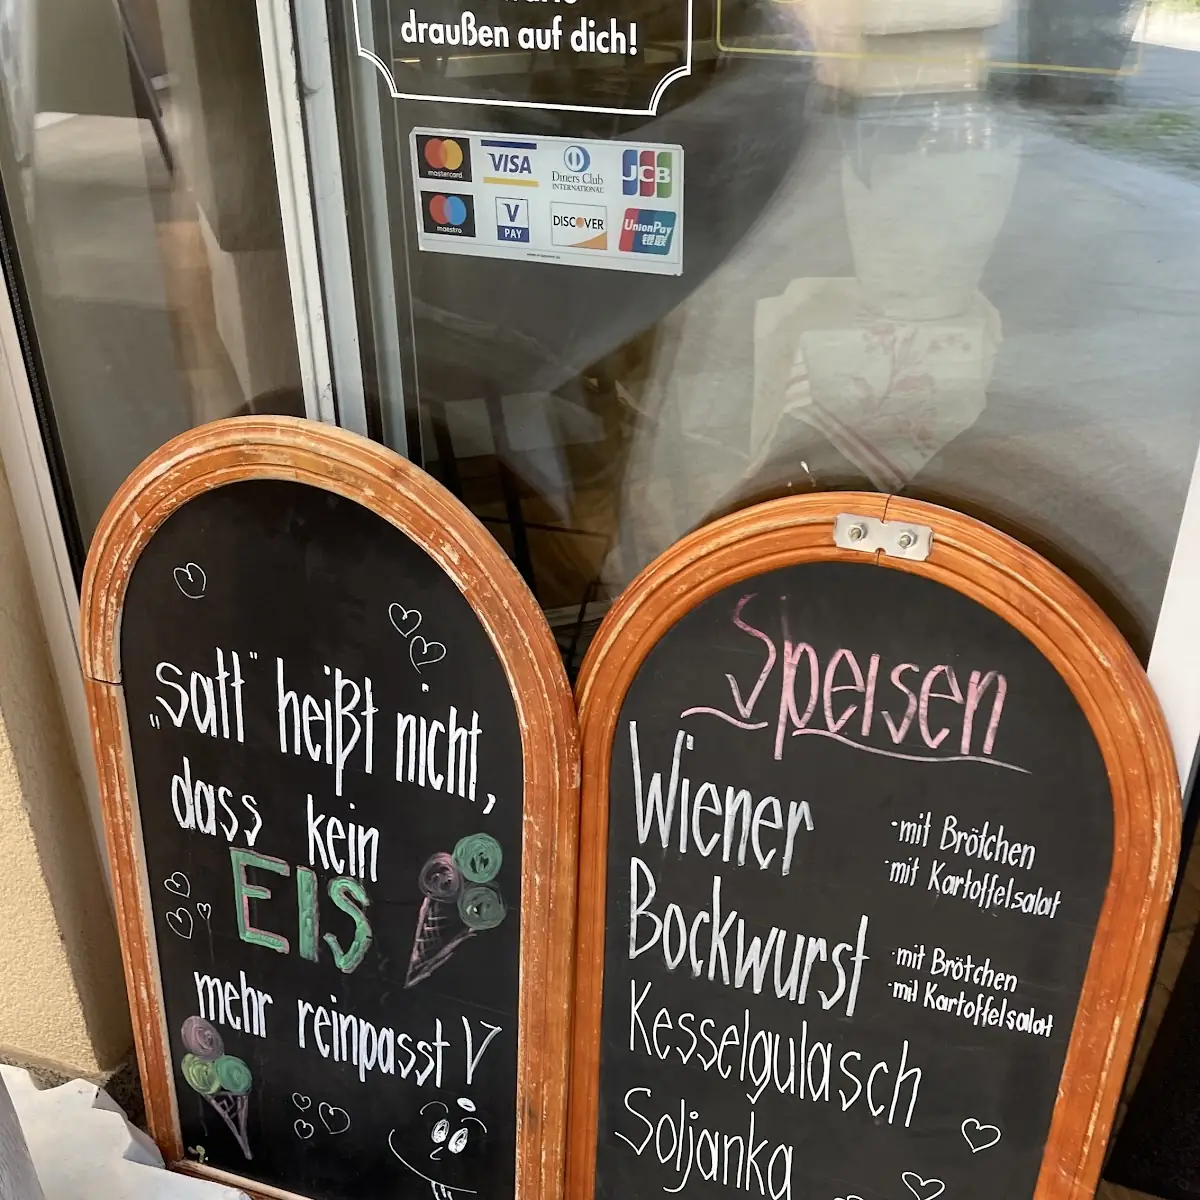 draußen auf dich!
mastercard
VISA
Diners Club
INTERNATIONAL
JCB
maestro
V
PAY
DISCOVER
UnionPay
银联
„satt" heißt nicht,
dass kein
EIS
mehr reinpasst!
Speisen
Wiener
·mit Brötchen
·mit Kartoffelsalat
Bockwurst
·mit Brötchen
·mit Kartoffelsalat
Kesselgulasch
Soljanka